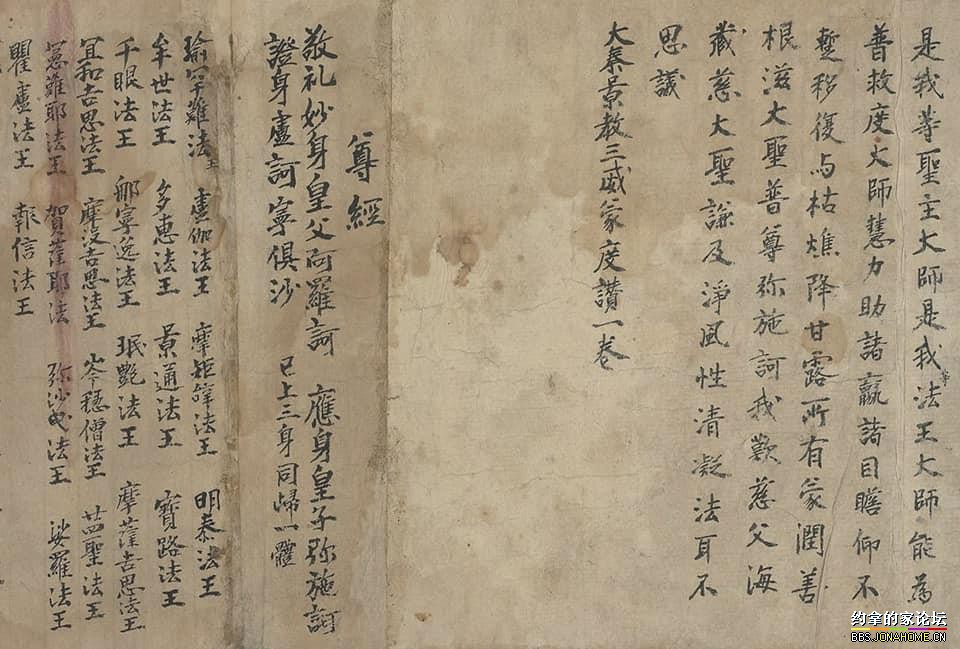 是我等聖主大師是我等法王大師能為
普救度大師慧力助諸羸諸目瞻仰不
蹔移復与枯燋降甘露所有蒙潤善
根滋大聖普尊弥施訶我歎慈父海
蔵慈大聖謙及淨風性清凝法耳不
思議
大秦景教三威蒙度讃一卷
尊經
敬礼妙身皇父阿羅訶 應身皇子弥施訶
證身盧訶寧俱沙 已上三身同歸一體
瑜罕難法王 盧伽法王 摩矩辭法王 明泰法王
牟世法王 多惠法王 景通法王 寶路法王
千眼法王 那寧逸法王 珉艷法王 摩薩吉思法王
宜和吉思法王 摩没吉思法王 岑穩僧法王 廿四聖法王
憲難耶法王 賀薩耶法 弥沙曳法王 娑羅法王
瞿盧法王 報信法王
约拿的家论坛
BBS.JONAHOME.CN